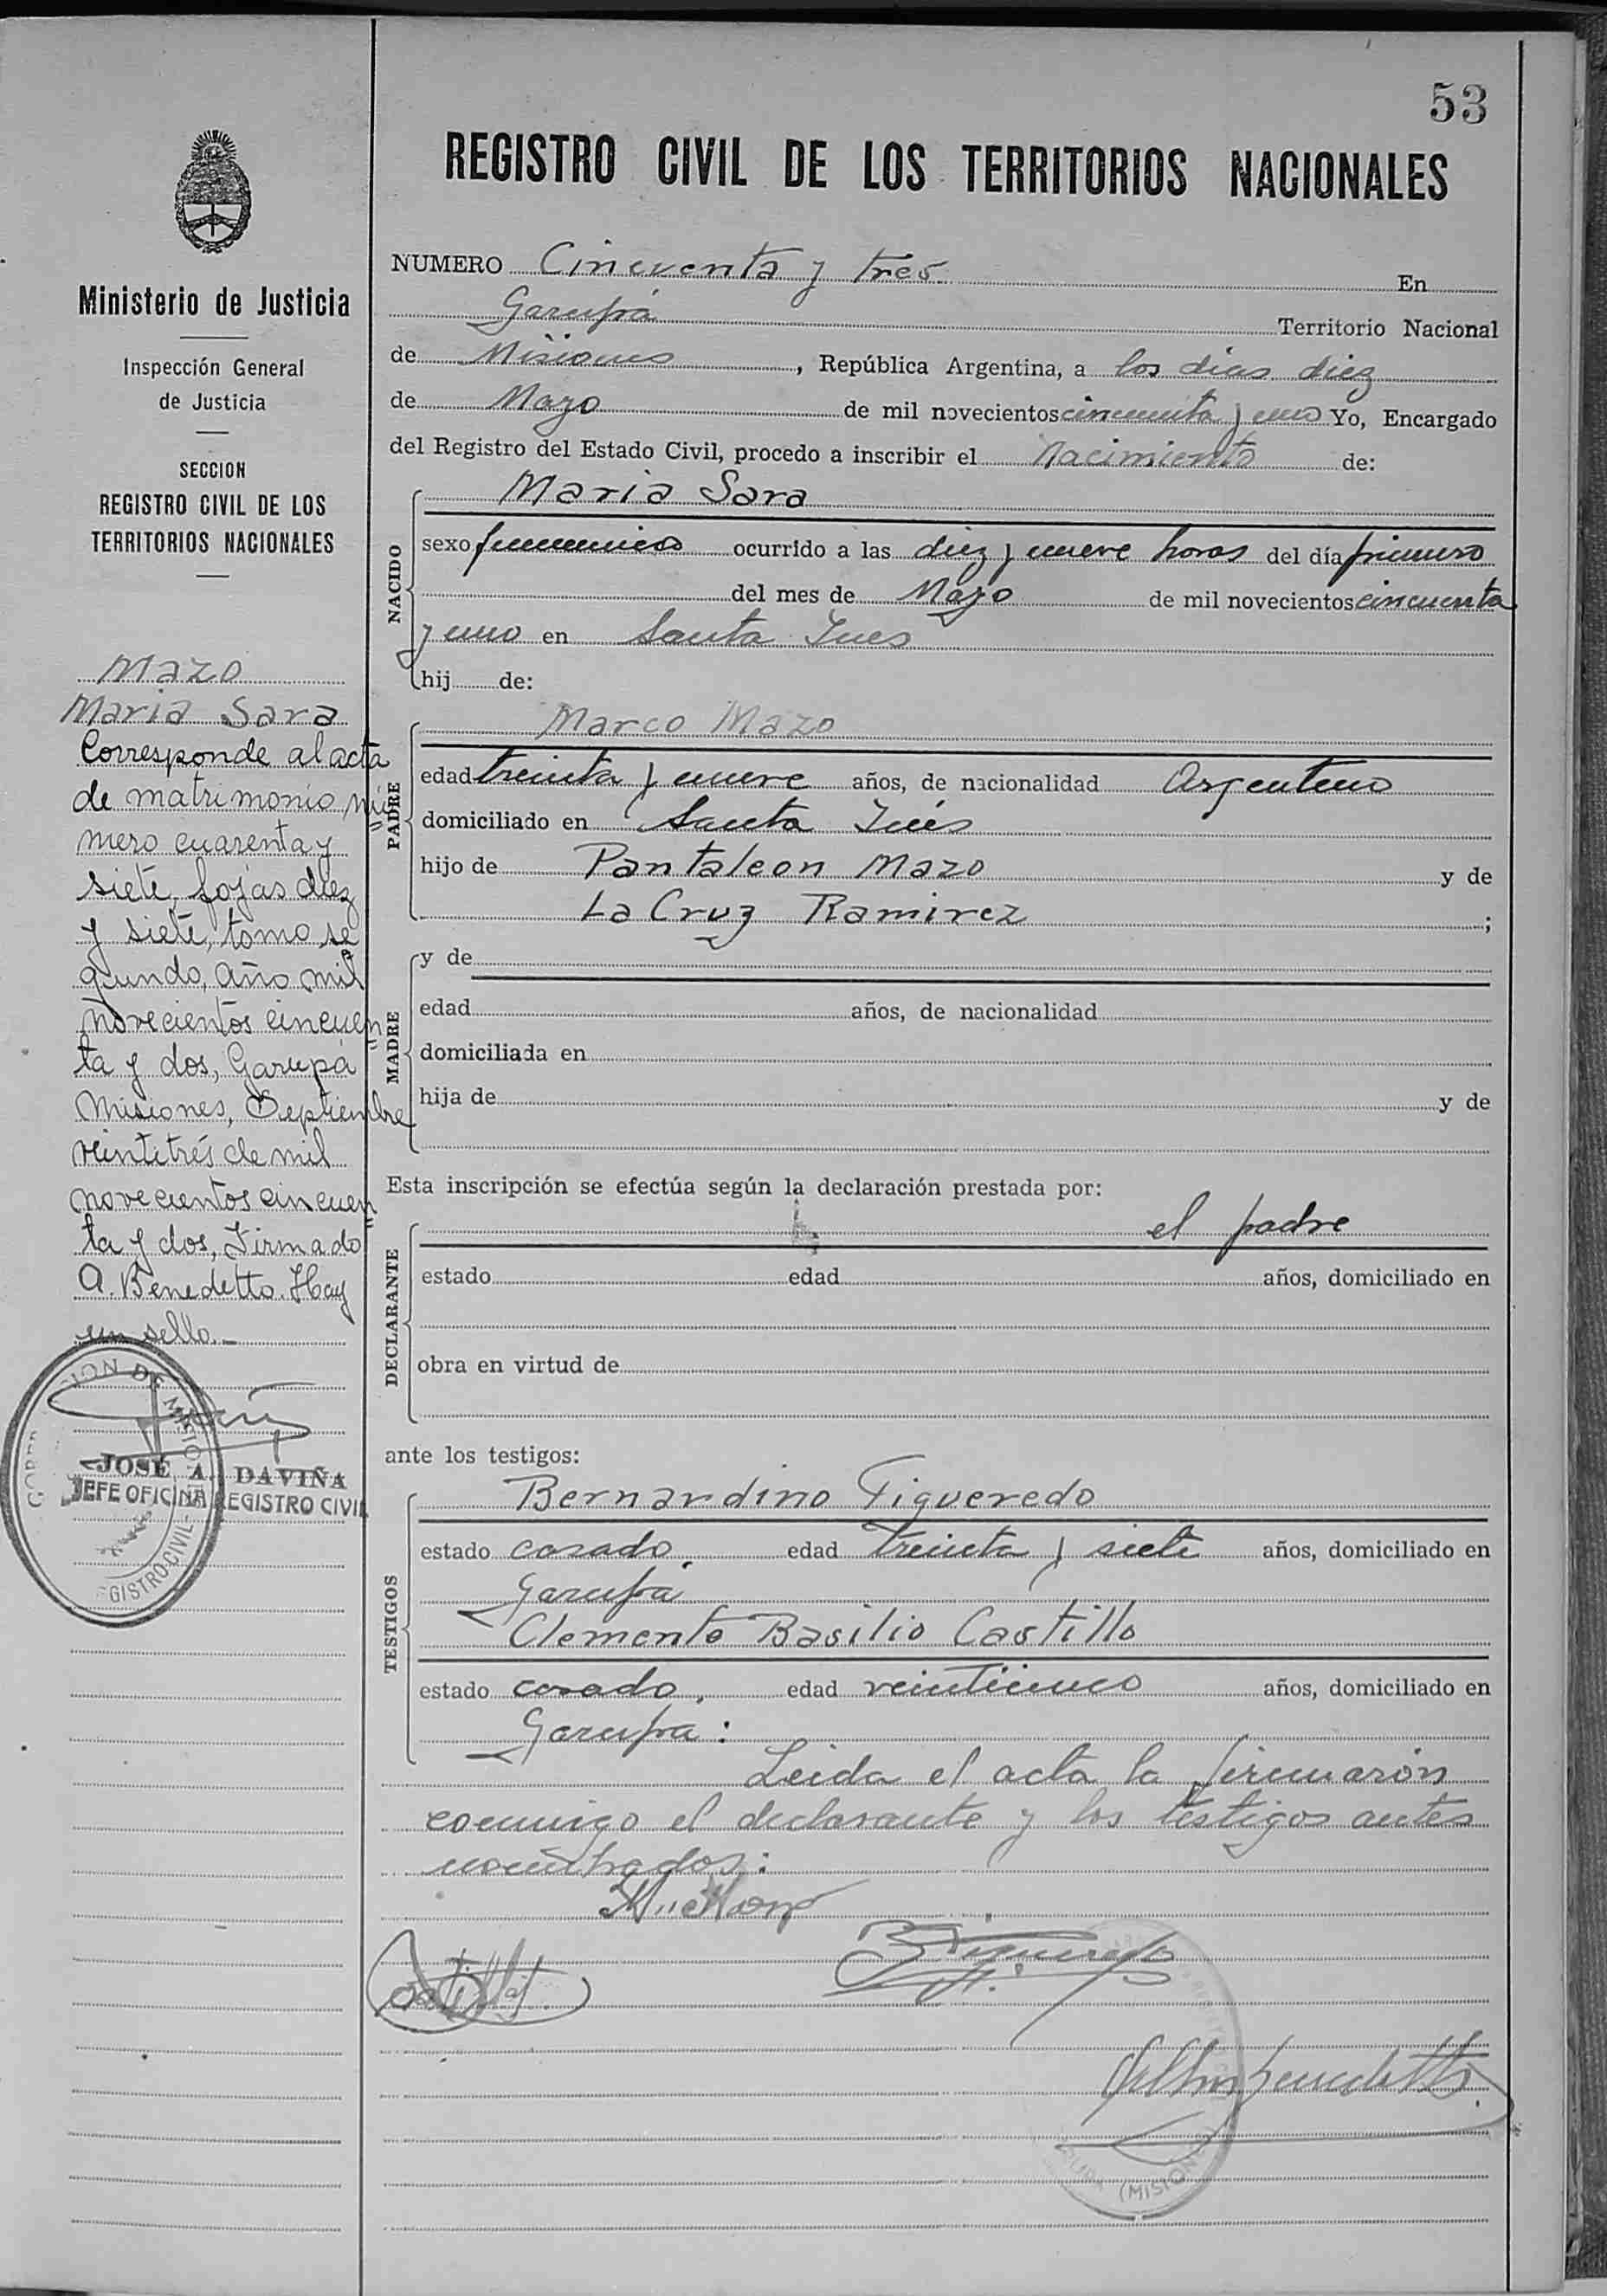 53
REGISTRO CIVIL DE LOS TERRITORIOS NACIONALES
Ministerio de Justicia
Inspección General
de Justicia
SECCION
REGISTRO CIVIL DE LOS
TERRITORIOS NACIONALES
Mazo
Maria Sara
Corresponde al acta
de matrimonio nú=
mero cuarenta y
siete, fojas diez
y siete, tomo se
gundo, año mil
novecientos cincuen=
ta y dos, Garupá
Misiones, Septiembre
veintitrés de mil
novecientos cincuen=
ta y dos, Firmado
A. Benedetto. Hay
un sello.-
JOSÉ A. DAVIÑA
JEFE OFICINA REGISTRO CIVIL
NUMERO Cincuenta y tres En
Garupá Territorio Nacional
de Misiones, República Argentina, a los dias diez
de Mayo de mil novecientos cincuenta y uno Yo, Encargado
del Registro del Estado Civil, procedo a inscribir el Nacimiento de:
NACIDO
Maria Sara
sexo femenino ocurrido a las diez y nueve horas del día primero
del mes de Mayo de mil novecientos cincuenta
y uno en Santa Ines
hij de:
PADRE
Marco Mazo
edad treinta y nueve años, de nacionalidad Argentino
domiciliado en Santa Inés
hijo de Pantaleon Mazo y de
La Cruz Ramirez ;
MADRE
y de
edad años, de nacionalidad
domiciliada en
hija de y de
Esta inscripción se efectúa según la declaración prestada por:
DECLARANTE
el padre
estado edad años, domiciliado en
obra en virtud de
ante los testigos:
TESTIGOS
Bernardino Figueredo
estado casado, edad treinta y siete años, domiciliado en
Garupá
Clemente Basilio Castillo
estado casado, edad veinticinco años, domiciliado en
Garupa:
Leida el acta la firmarón
conmigo el declarante y los testigos antes
nombrados: